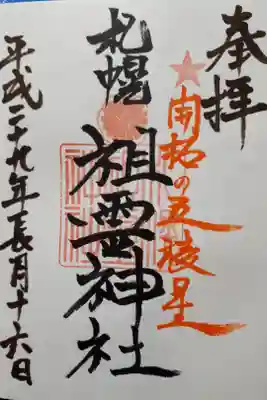 奉拝
開拓の五稜星
札幌
祖霊神社
平成二十九年長月十六日